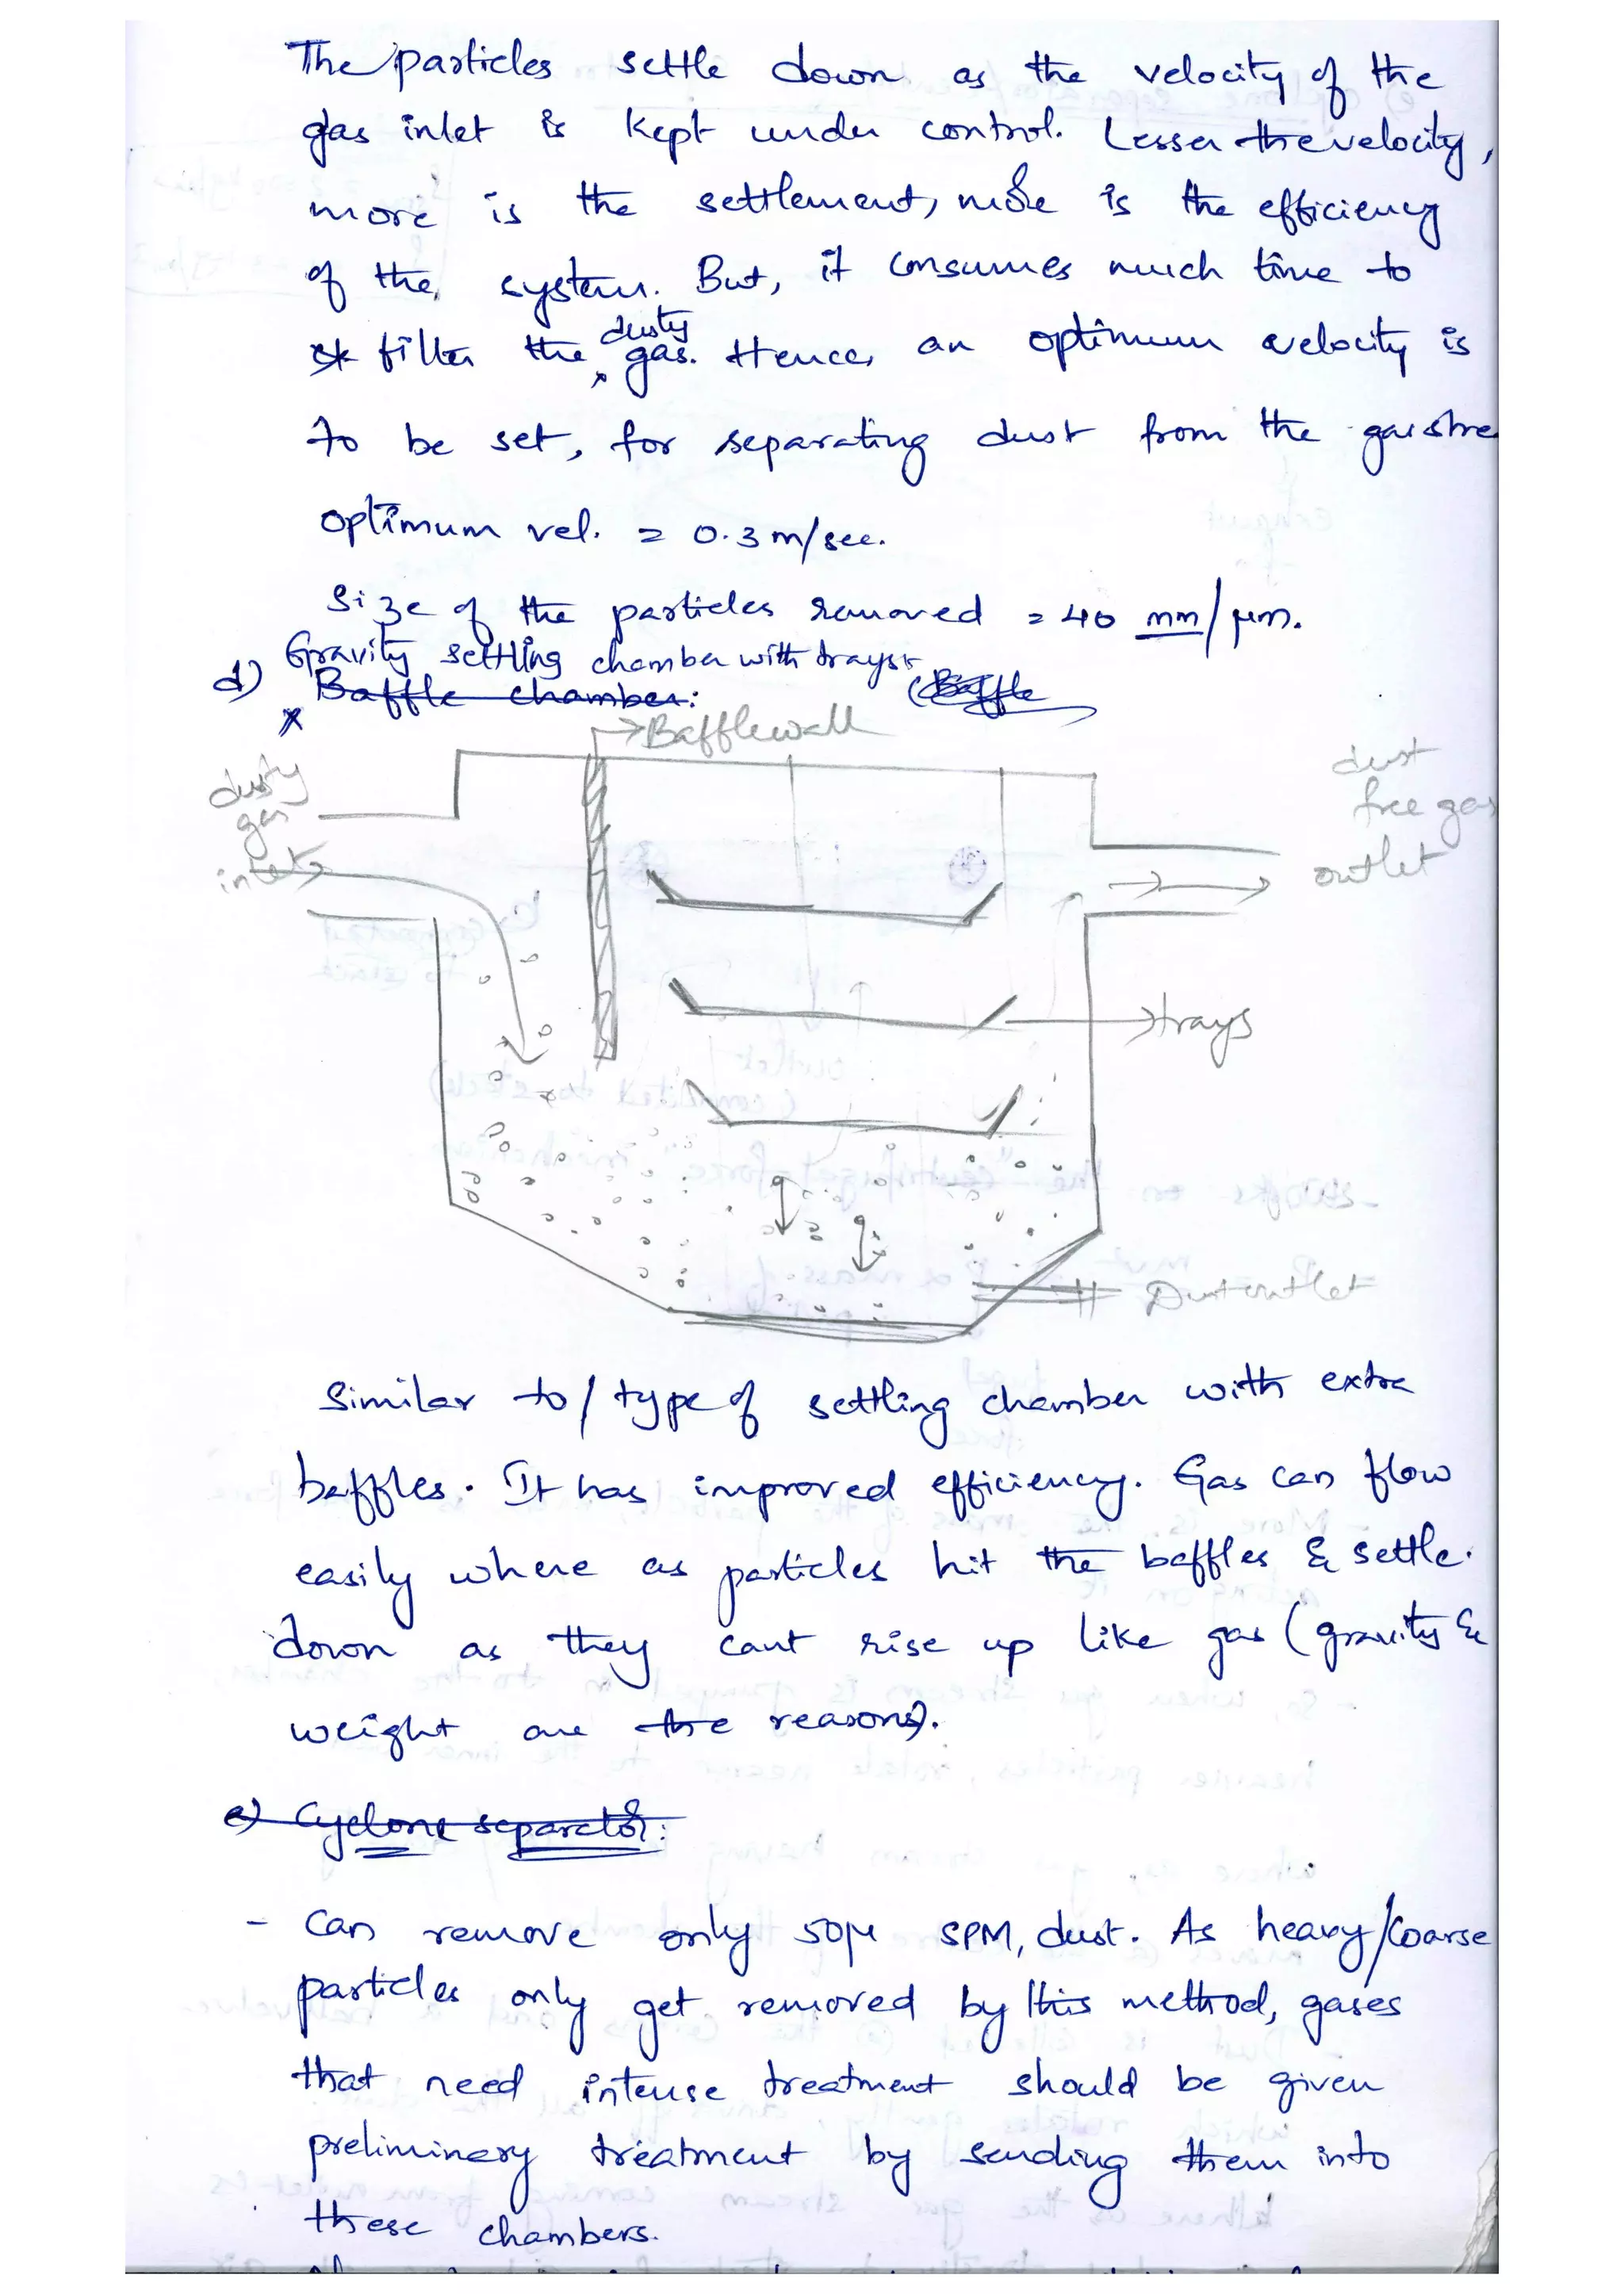 The particles settle down as the velocity of the
gas inlet is kept under control. Lesser the velocity,
more is the settlement, more is the efficiency
of the system. But, it consumes much time to
filter the dusty gas. Hence, an optimum velocity is
to be set, for separating dust from the gas stre
optimum vel. = 0.3 m/sec.
Size of the particles removed = 40 mm/μm.
d) Gravity settling chamber with trays
Baffle chamber: (Baffle
→ Baffle wall
dusty
gas
inlet
dust
free gas
outlet
trays
Dust outlet
Similar to / type of settling chamber with extra
baffles. It has improved efficiency. Gas can flow
easily where as particles hit the baffles & settle.
down as they cant rise up like gas (gravity &
weight are the reasons).
e) Cyclone separator:
- Can remove only 50μ SPM, dust. As heavy/coarse
particles only get removed by this method, gases
that need intense treatment should be given
preliminary treatment by sending them into
these chambers.